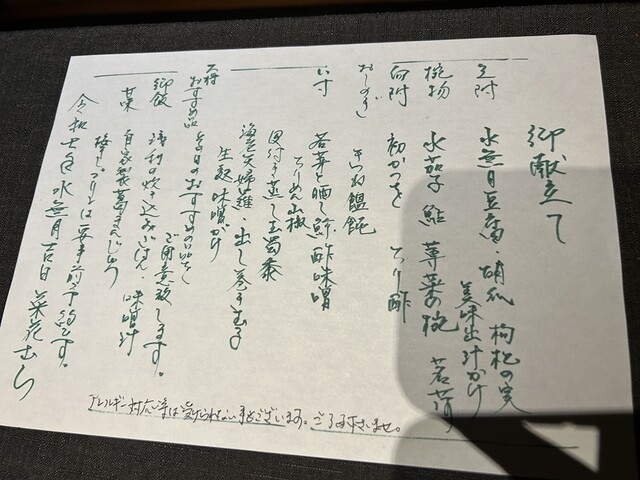 御献立て
先附 水無月豆腐・胡瓜 枸杞の実
美味出汁かけ
椀物 水茄子 鮎 蓴菜の椀 茗荷
向附 初かつを とろり酢
おしのぎ きつね饂飩
八寸 若芽と晒し鯨 酢味噌
ちりめん山椒
皮付き蒸し玉蜀黍
海老天婦羅・出し巻き玉子
生麩 味噌がけ
大将おすすめ品 本日のおすすめの品を
ご用意致します。
御飯 浅利の炊き込みごはん 味噌汁
菓 自家製葛まんじゅう
極上プリンは要事前予約です。
令和 七年 水無月吉日 菜花
アレルギー対応等は受けられない事もございます。ご了承下さいませ。